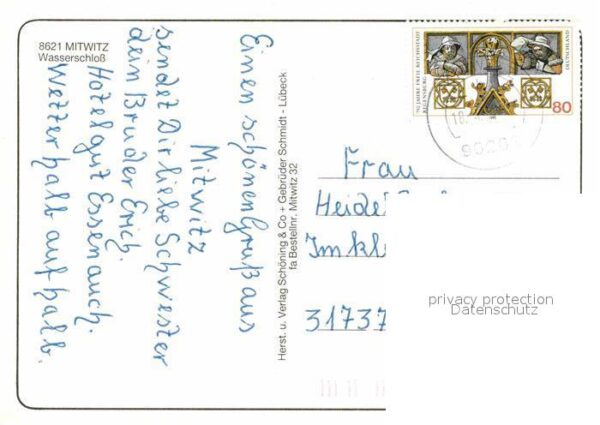 8621 MITWITZ
Wasserschloß
Einen schönen Gruß aus
Mitwitz
sendet Dir liebe Schwester
dein Bruder Erich.
Hotel gut Essen auch.
Wetter halb auf halb.
Herst. u. Verlag Schöning & Co + Gebrüder Schmidt - Lübeck
fa Bestellnr. Mitwitz 32
750 JAHRE FREIE REICHSSTADT
REGENSBURG
DEUTSCHLAND
80
Frau
Im
31737
privacy protection
Datenschutz